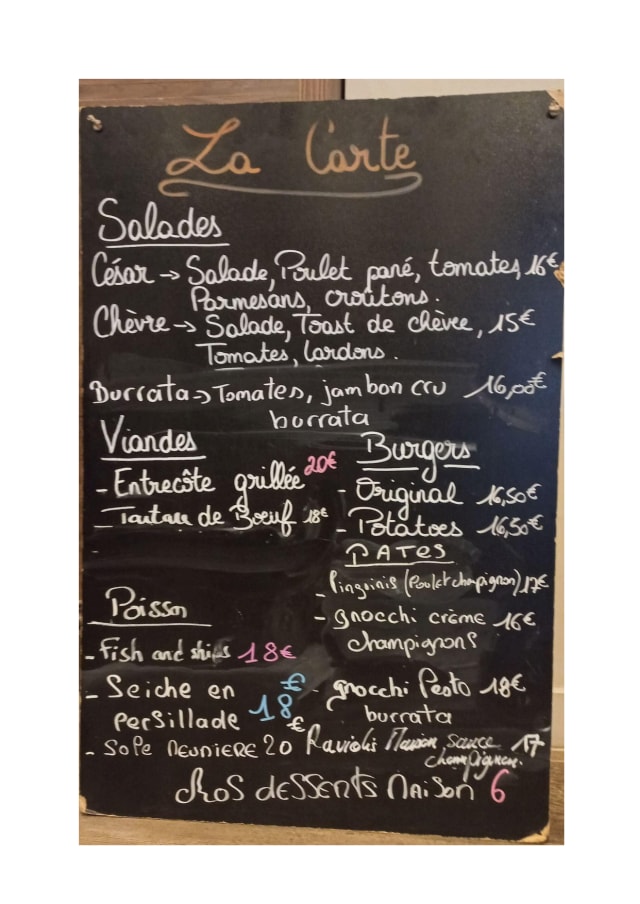 La Carte
Salades
César → Salade, Poulet pané, tomates, 16€
Parmesans, croûtons.
Chèvre → Salade, Toast de chèvre, 15€
Tomates, lardons.
Burrata → Tomates, jambon cru 16,00€
burrata
Viandes
- Entrecôte grillée 20€
- Tartare de Boeuf 18€
Burgers
- Original 16,50€
- Potatoes 16,50€
PATES
- Pinguinis (Poulet champignon) 17€
- gnocchi crème 16€
champignons
- gnocchi Pesto 18€
burrata
Raviolis Maison sauce 17
champignon.
Poisson
- Fish and ships 18€
- Seiche en 18€
persillade
- Sole meunière 20€
Nos desserts Maison 6